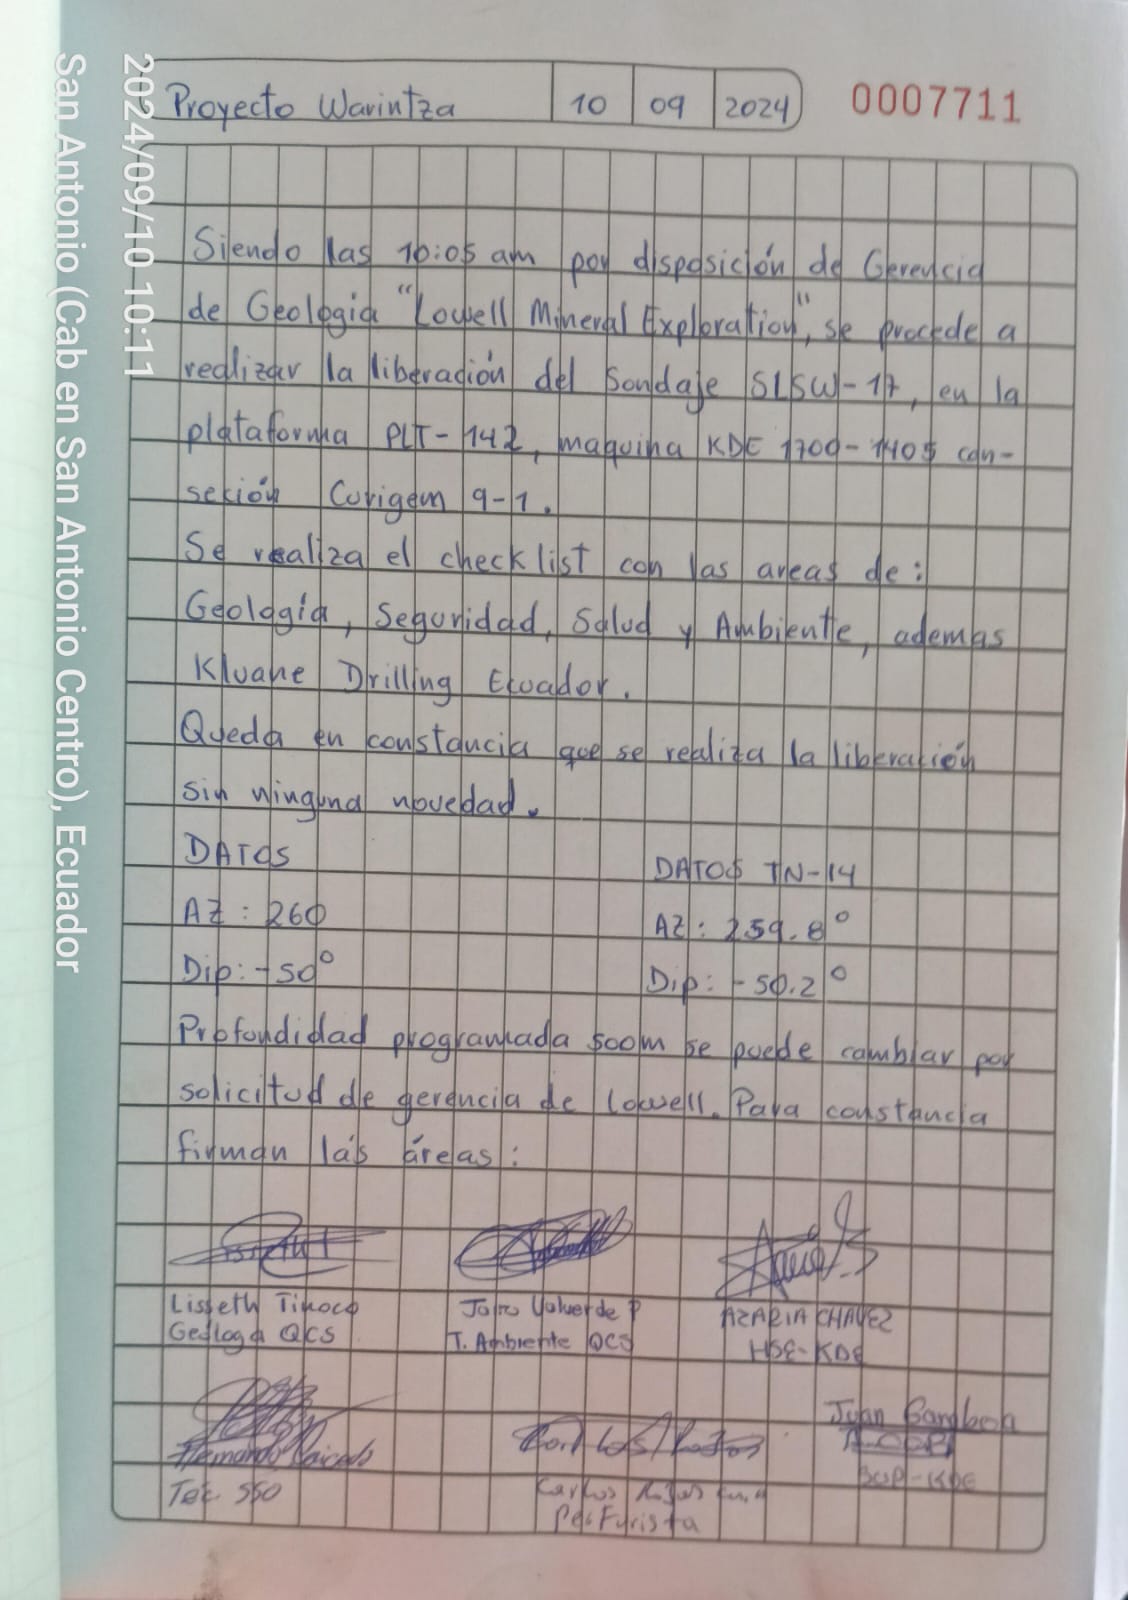 Proyecto Warintza 10 09 2024 0007711
Siendo las 10:05 am por disposición de Gerencia
de Geologia "Lowell Mineral Exploration", se procede a
realizar la liberación del Sondaje SLSW-17, en la
plataforma PLT-142, maquina KDE 1700-1405 con-
seción Curigem 9-1.
Se realiza el checklist con las areas de:
Geología, Seguridad, Salud y Ambiente, ademas
Kluane Drilling Ecuador.
Queda en constancia que se realiza la liberación
sin ninguna novedad.
DATOS DATOS TN-14
AZ: 260 AZ: 259.8°
Dip: -50° Dip: -50.2°
Profundidad programada 500m se puede cambiar por
solicitud de gerencia de Lowell. Para constancia
firman las áreas:
Lisseth Tinoco Jairo Valverde P AZARIA CHAVEZ
Geologa QCS T. Ambiente QCS HSE-KDE
Juan Gamboa
Hernando
Tec. SSO Carlos Rojas SUP-KDE
Perforista
2024/09/10 10:11
San Antonio (Cab en San Antonio Centro), Ecuador